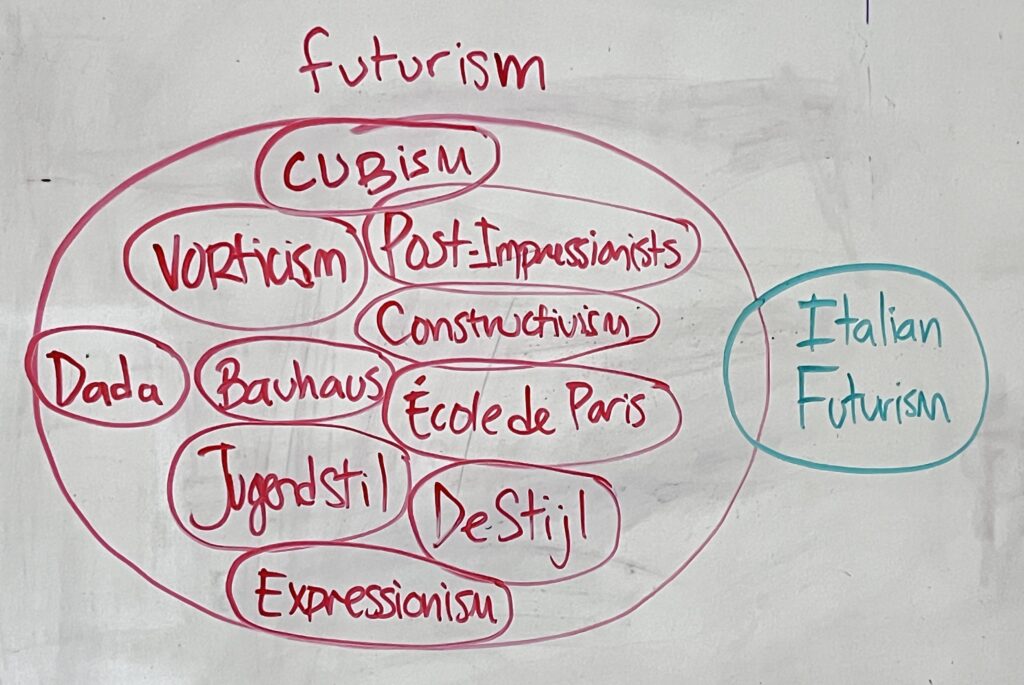 futurism
CUBism
VORticism
Post-Impressionists
Constructivism
Dada
Bauhaus
École de Paris
Jugendstil
De Stijl
Expressionism
Italian
Futurism